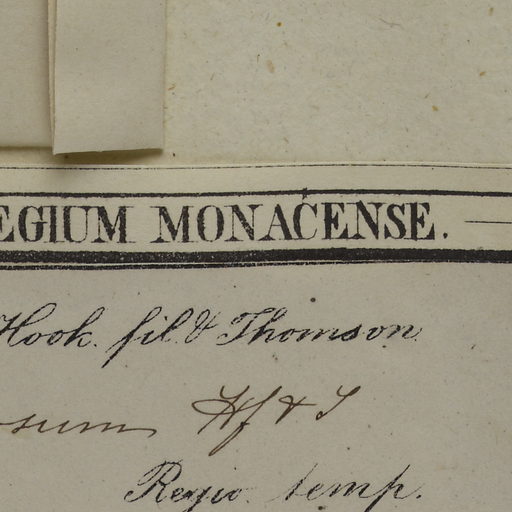 EGIUM MONACENSE.
Hook. fil. & Thomson
sum Hf & T
Regio temp.